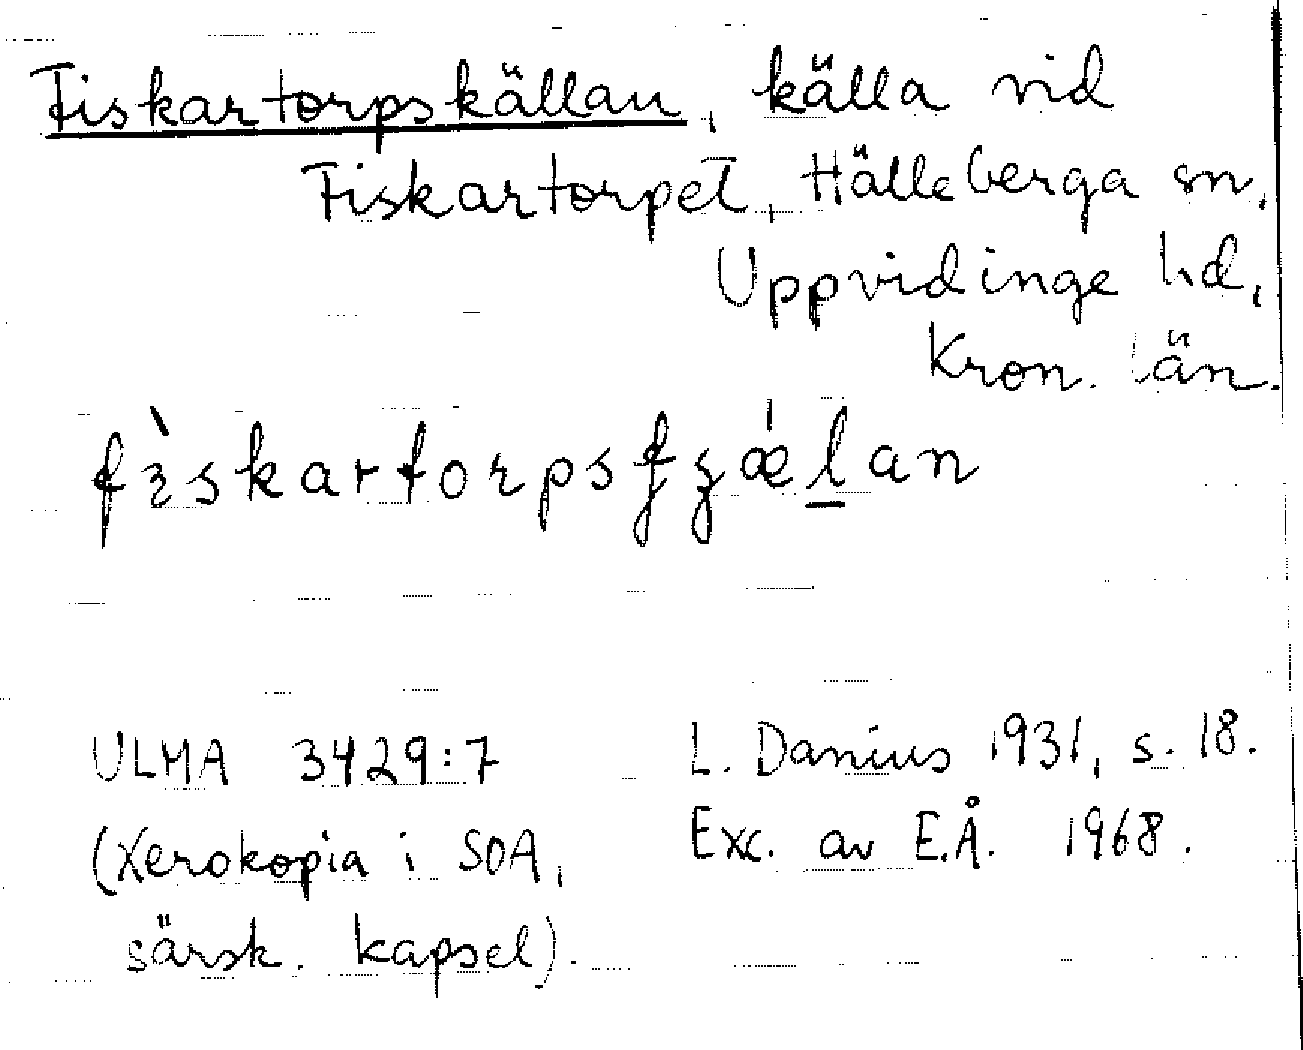 Fiskartorpskällan, källa vid
Fiskartorpet, Hälleberga sn,
Uppvidinge hd,
Kron. län.
ULMA 3429:7
(Xerokopia i SOA,
särsk. kapsel).
L. Danius 1931, s. 18.
Exc. av E.Å. 1968.